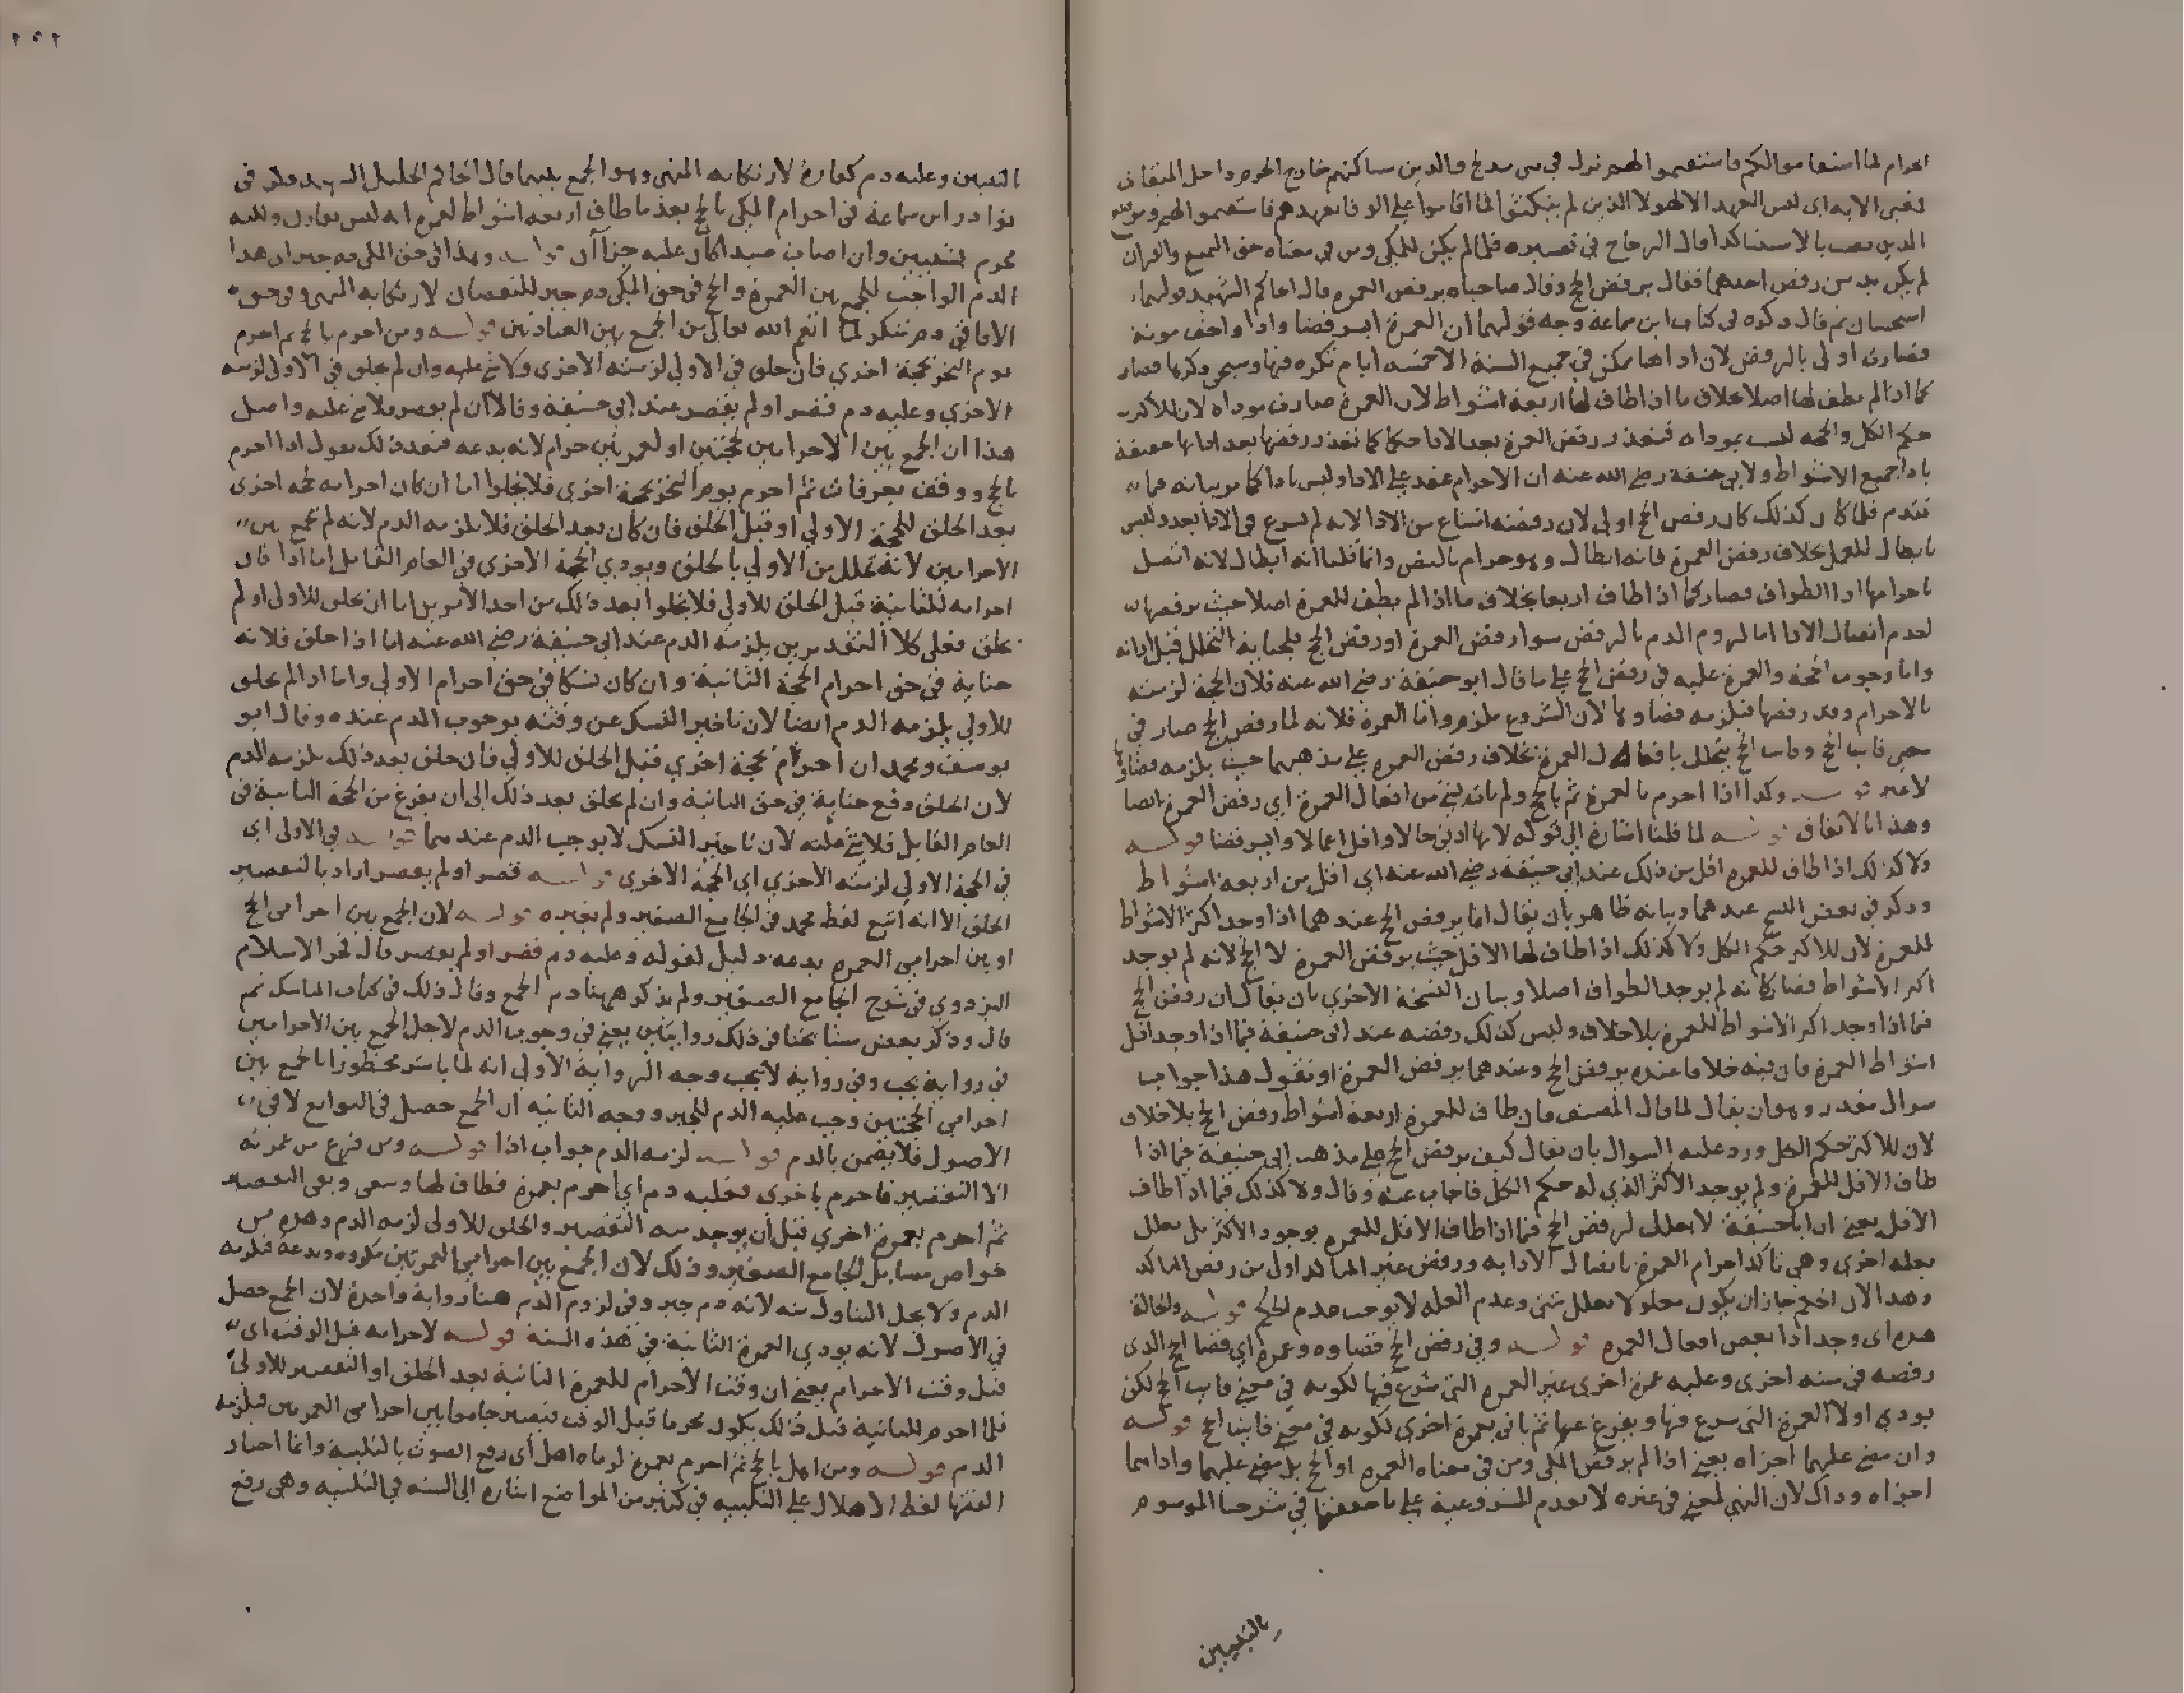 الحرام فما استقاموا لكم فاستقيموا لهم نزل في بني مدلج فالذين ساكنهم خارج الحرم داخل الميقات
الذين نصب بالاستثنا كذا قال الزجاج في تفسيره فلما لم يكن للمكي ومن في معناه حق التمتع والقران
لم يكن بد من رفض احدهما فقال يرفض الحج وقال صاحباه يرفض العمرة قال الحاكم الشهيد قولهما
استحسان ثم قال ذكره في كتاب ابن سماعة وجه قولهما ان العمرة ايسر قضا واداء واخف مونة
فصارت اولى بالرفض لان اداها ممكن في جميع السنة الا خمسة ايام تكره فيها وسيجي ذكرها فصار
كما اذا لم يطف لها اصلا بخلاف ما اذا طاف لها اربعة اشواط لان العمرة صارت موداه لان للاكثر
حكم الكل والحجة ليست بموداه فتعذر رفض العمرة بعد الادا حكما كما تعذر رفضها بعد ادايها حقيقة
باداء جميع الاشواط ولابي حنيفة رضي الله عنه ان الاحرام عقد على الاداء وليس باداء كما مر بيانه فيما
تقدم فلما كان كذلك كان رفض الحج اولى لان رفضه امتناع من الادا لانه لم يشرع في الاداء بعد وليس
بابطال للعمل بخلاف رفض العمرة فانه ابطال وهو حرام بالنص وانما قلنا انه ابطال لانه اتصل
باحرامها اداء الطواف فصار كما اذا طاف اربعا بخلاف ما اذا لم يطف للعمرة اصلا حيث يرفضها
لعدم اتصال الاداء اما لزوم الدم بالرفض سوا رفض العمرة او رفض الحج فلجناية التحلل قبل اوانه
واما وجوب الحجة والعمرة عليه في رفض الحج على ما قال ابو حنيفة رضي الله عنه فلان الحجة لزمته
بالاحرام وقد رفضها فيلزمه قضاوها لان الشروع ملزم واما العمرة فلانه لما رفض الحج صار في
معنى فايت الحج وفايت الحج يتحلل بافعال العمرة بخلاف رفض العمرة على مذهبهما حيث يلزمه قضاوها
لا غير قولــه وكذا اذا احرم بالعمرة ثم بالحج ولم يات بشي من افعال العمرة اي رفض العمرة ايضا
وهذا بالاتفاق قولــه لما قلنا اشارة الى قوله لانها ادنى حالا واقل اعمالا وايسر قضا قولــه
ولا كذلك اذا طاف للعمرة اقل من ذلك عند ابي حنيفة رضي الله عنه اي اقل من اربعة اشواط
وذكر في بعض النسخ عندهما وبيانه ظاهر بان يقال انما يرفض الحج عندهما اذا وجد اكثر الاشواط
للعمرة لان للاكثر حكم الكل ولا كذلك اذا طاف لها الاقل حيث يرفض العمرة لا الحج لانه لم يوجد
اكثر الاشواط فصار كانه لم يوجد الطواف اصلا وبيان النسخة الاخرى بان يقال ان رفض الحج
فيما اذا وجد اكثر الاشواط للعمرة بلا خلاف وليس كذلك رفضه عند ابي حنيفة فيما اذا وجد اقل
اشواط العمرة فان فيه خلافا عنده يرفض الحج وعندهما يرفض العمرة او نقول هذا جواب
سوال مقدر وهو ان يقال لما قال المصنف فان طاف للعمرة اربعة اشواط رفض الحج بلا خلاف
لان للاكثر حكم الكل ورد عليه السوال بان يقال كيف يرفض الحج على مذهب ابي حنيفة فيما اذا
طاف الاقل للعمرة ولم يوجد الاكثر الذي له حكم الكل فاجاب عنه وقال ولا كذلك فيما اذا طاف
الاقل يعني ان ابا حنيفة لا يعلل لرفض الحج فيما اذا طاف الاقل للعمرة بوجود الاكثر بل يعلل
بعلة اخرى وهي تاكد احرام العمرة باتصال الادا به ورفض غير المتاكد اولى من رفض المتاكد
وهذا لان الحكم جاز ان يكون معلولا بعلل شتى وعدم العلة لا يوجب عدم الحكم قولــه والحالة
هذه اي وجد اداء بعض افعال العمرة قولــه وفي رفض الحج قضاوه وعمرة اي قضا الحج الذي
رفضه في سنة اخرى وعليه عمرة اخرى غير العمرة التي شرع فيها لكونه في معنى فايت الحج لكن
يودي اولا العمرة التي شرع فيها ويفرغ عنها ثم ياتي بعمرة اخرى لكونه في معنى فايت الحج قولــه
وان مضى عليهما اجزاه يعني اذا لم يرفض المكي ومن في معناه العمرة او الحج بل مضى عليهما واداهما
اجزاه وذاك لان النهي لمعنى في غيره لا يعدم المشروعية على ما حققنا في شرحنا الموسوم
بالتبيين
التبيين وعليه دم كفارة لارتكابه المنهي وهو الجمع بينهما قال الحاكم الجليل الشهيد في
نوادر ابن سماعة في احرام المكي بالحج بعد ما طاف اربعة اشواط لعمرة انه ليس بقارن ولكنه
محرم بشيين وان اصاب صيدا كان عليه جزاآن قولــه وهذا في حق المكي دم جبر اي هذا
الدم الواجب للجمع بين العمرة والحج في حق المكي دم جبر للنقصان لارتكابه المنهي وفي حق
الافاقي دم شكر لما انعم الله تعالى من الجمع بين العبادتين قولــه ومن احرم بالحج ثم احرم
يوم النحر بحجة اخرى فان حلق في الاولى لزمته الاخرى ولا شي عليه وان لم يحلق في الاولى لزمته
الاخرى وعليه دم قصر او لم يقصر عند ابي حنيفة وقالا ان لم يقصر فلا شي عليه واصل
هذا ان الجمع بين الاحرامين لحجتين او لعمرتين حرام لانه بدعة فبعد ذلك نقول اذا احرم
بالحج ووقف بعرفات ثم احرم يوم النحر بحجة اخرى فلا يخلوا اما ان كان احرامه بحجة اخرى
بعد الحلق للحجة الاولى او قبل الحلق فان كان بعد الحلق فلا يلزمه الدم لانه لم يجمع بين
الاحرامين لانه تحلل من الاولى بالحلق ويودي الحجة الاخرى في العام القابل اما اذا كان
احرامه للثانية قبل الحلق للاولى فلا يخلوا بعد ذلك من احد الامرين اما ان يحلق للاولى او لم
يحلق فعلى كلا التقديرين يلزمه الدم عند ابي حنيفة رضي الله عنه اما اذا حلق فلانه
جناية في حق احرام الحجة الثانية وان كان نسكا في حق احرام الاولى واما اذا لم يحلق
للاولى يلزمه الدم ايضا لان تاخير النسك عن وقته يوجب الدم عنده وقال ابو
يوسف ومحمد ان احرم بحجة اخرى قبل الحلق للاولى فان حلق بعد ذلك يلزمه الدم
لان الحلق وقع جناية في حق الثانية وان لم يحلق بعد ذلك الى ان يفرغ من الحجة الثانية في
العام القابل فلا شي عليه لان تاخير النسك لا يوجب الدم عندهما قولــه في الاولى اي
في الحجة الاولى لزمته الاخرى اي الحجة الاخرى قولــه قصر او لم يقصر اراد بالتقصير
الحلق الا انه اتبع لفظ محمد في الجامع الصغير ولم يغيره قولــه لان الجمع بين احرامي الحج
او بين احرامي العمرة بدعة دليل لقوله وعليه دم قصر او لم يقصر قال فخر الاسلام
البزدوي في شرح الجامع الصغير ولم يذكر ههنا دم الجمع وقال ذلك في كتاب المناسك ثم
قال وذكر بعض مشايخنا في ذلك روايتين يعني في وجوب الدم لاجل الجمع بين الاحرامين
في رواية يجب وفي رواية لا يجب وجه الرواية الاولى انه لما باشر محظورا بالجمع بين
احرامي الحجتين وجب عليه الدم للجبر ووجه الثانية ان الجمع حصل في التوابع لا في
الاصول فلا يضمن بالدم قولــه لزمه الدم جواب اذا قولــه ومن فرغ من عمرته
الا التقصير فاحرم باخرى فعليه دم اي احرم بعمرة فطاف لها وسعى وبقي التقصير
ثم احرم بعمرة اخرى قبل ان يوجد منه التقصير والحلق للاولى لزمه الدم وهذه من
خواص مسايل الجامع الصغير وذلك لان الجمع بين احرامي العمرتين مكروه وبدعة فيلزمه
الدم ولا يحل التناول منه لانه دم جبر وفي لزوم الدم هنا رواية واحدة لان الجمع حصل
في الاصول لانه يودي العمرة الثانية في هذه السنة قولــه لاحرامه قبل الوقت اي
قبل وقت الاحرام يعني ان وقت الاحرام للعمرة الثانية بعد الحلق او التقصير للاولى
فلما احرم للثانية قبل ذلك يكون محرما قبل الوقت فيصير جامعا بين احرامي العمرتين فيلزمه
الدم قولــه ومن اهل بالحج ثم احرم بعمرة لزماه اهل اي رفع الصوت بالتلبية وانما اختار
الفقها لفظ الاهلال على التلبية في كثير من المواضع اشارة الى السنة في التلبية وهي رفع